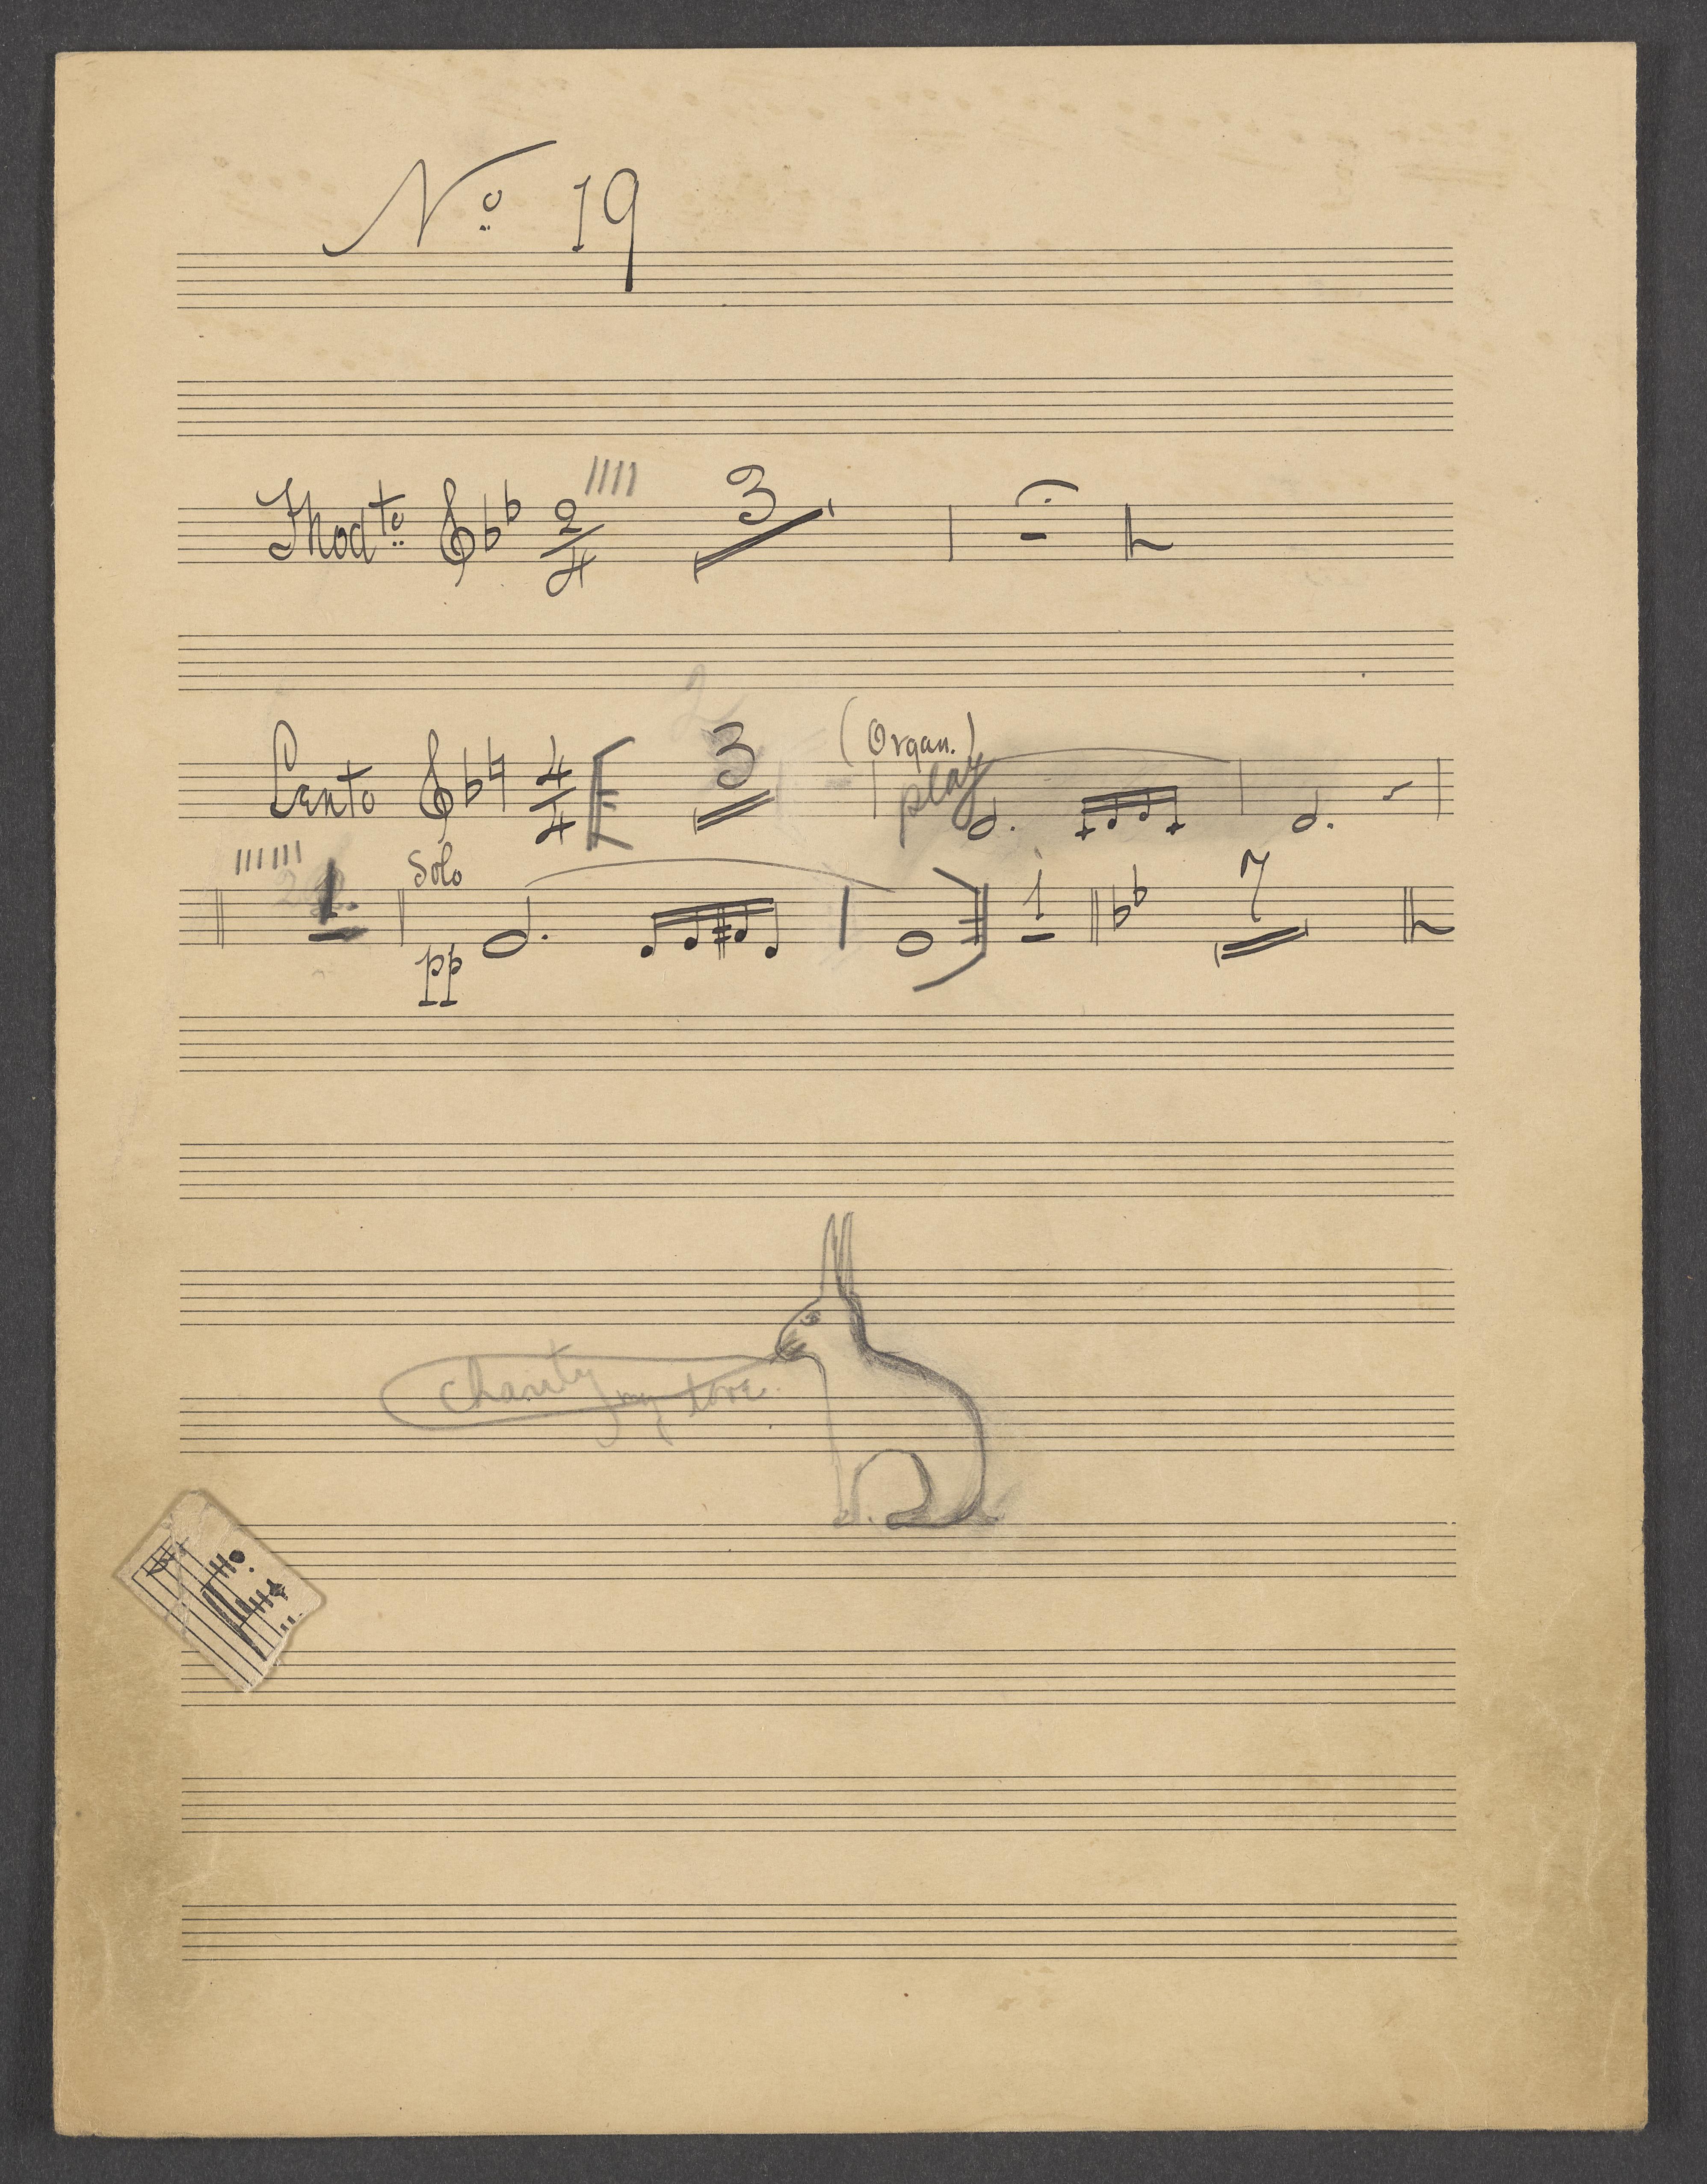 No 19
Modto 2/4 3
2
Lento 4/4 3 (Organ.) play
1 Solo 1 7
pp
charity my love.